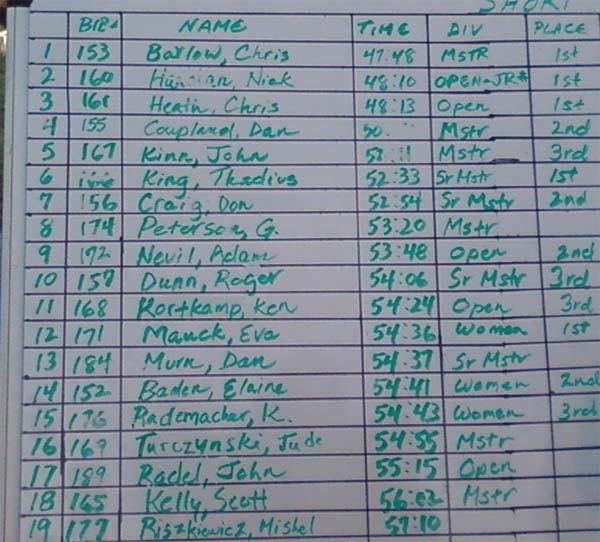 SHORT
BIB# NAME TIME DIV PLACE
1 153 Barlow, Chris 47:48 MSTR 1st
2 160 Nick 48:10 OPEN-JR* 1st
3 161 Heath, Chris 48:13 Open 1st
4 155 Coupland, Dan 50: Mstr 2nd
5 167 Kinn, John Mstr 3rd
6 King, Thadius 52:33 Sr Mstr 1st
7 156 Craig, Don 52:54 Sr Mstr 2nd
8 174 Peterson, G. 53:20 Mstr
9 172 Nevil, Adam 53:48 Open 2nd
10 157 Dunn, Roger 54:06 Sr Mstr 3rd
11 168 Kortkamp, Ken 54:24 Open 3rd
12 171 Mauck, Eva 54:36 Women 1st
13 184 Murn, Dan 54:37 Sr Mstr
14 152 Baden, Elaine 54:41 Women 2nd
15 176 Rademacher, K. 54:43 Women 3rd
16 169 Turczynski, Jude 54:55 Mstr
17 189 Radel, John 55:15 Open
18 165 Kelly, Scott 56:02 Mstr
19 177 Riszkiewicz, Mishel 57:10